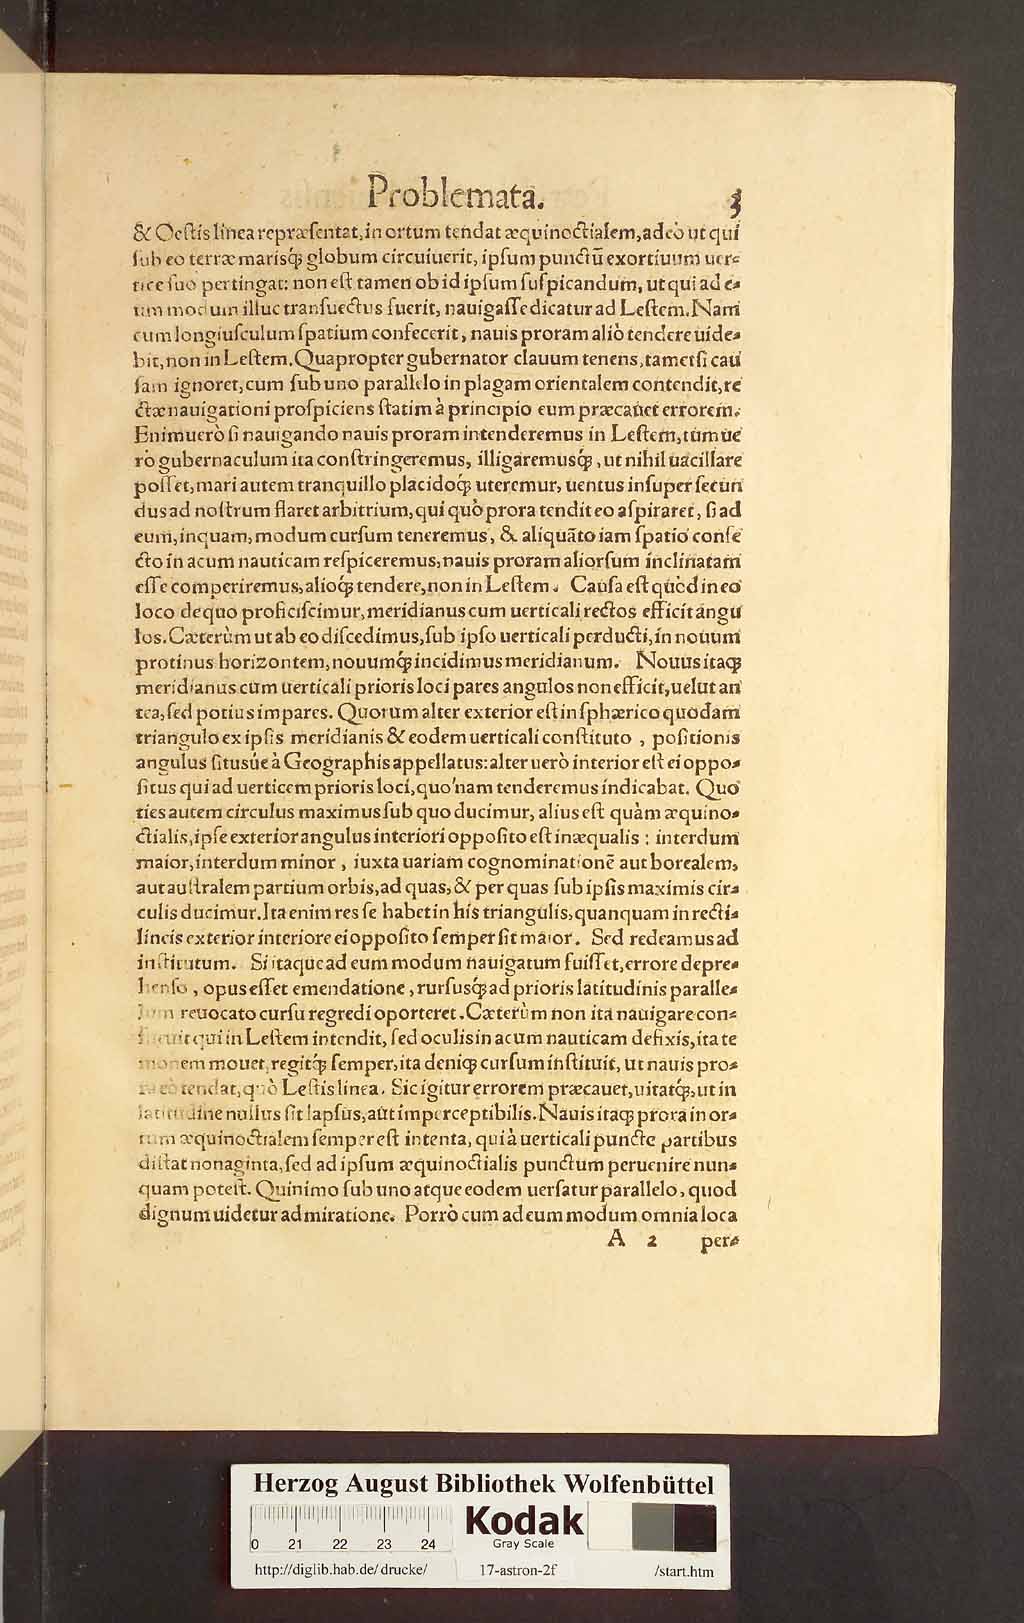 Problemata. 3
& Oestis linea repræsentat, in ortum tendat æquinoctialem, adeò ut qui
sub eo terræ marisq́; globum circuiuerit, ipsum punctū exortiuum uer⸗
tice suo pertingat: non est tamen ob id ipsum suspicandum, ut qui ad e⸗
um modum illuc transuectus fuerit, nauigasse dicatur ad Lestem. Nam
cum longiusculum spatium confecerit, nauis proram aliò tendere uide⸗
bit, non in Lestem. Quapropter gubernator clauum tenens, tametsi cau
sam ignoret, cum sub uno parallelo in plagam orientalem contendit, re
ctæ nauigationi prospiciens statim à principio eum præcauet errorem.
Enimuerò si nauigando nauis proram intenderemus in Lestem, tùm ue
rò gubernaculum ita constringeremus, illigaremusq́;, ut nihil uacillare
posset, mari autem tranquillo placidoq́; uteremur, uentus insuper secun
dus ad nostrum flaret arbitrium, qui quò prora tendit eo aspiraret, si ad
eum, inquam, modum cursum teneremus, & aliquāto iam spatio confe
cto in acum nauticam respiceremus, nauis proram aliorsum inclinatam
esse comperiremus, alioq́; tendere, non in Lestem. Causa est quòd in eo
loco de quo proficiscimur, meridianus cum uerticali rectos efficit angu
los. Cæterùm ut ab eo discedimus, sub ipso uerticali perducti, in nouum
protinus horizontem, nouumq́; incidimus meridianum. Nouus itaq;
meridianus cum uerticali prioris loci pares angulos non efficit, uelut an
tea, sed potius impares. Quorum alter exterior est in sphærico quodam
triangulo ex ipsis meridianis & eodem uerticali constituto, positionis
angulus situsúe à Geographis appellatus: alter uerò interior est ei oppo⸗
situs qui ad uerticem prioris loci, quo'nam tenderemus indicabat. Quo
ties autem circulus maximus sub quo ducimur, alius est quàm æquino⸗
ctialis, ipse exterior angulus interiori opposito est inæqualis: interdum
maior, interdum minor, iuxta uariam cognominationē aut borealem,
aut australem partium orbis, ad quas, & per quas sub ipsis maximis cir⸗
culis ducimur. Ita enim res se habet in his triangulis, quanquam in recti⸗
lineis exterior interiore ei opposito semper sit maior. Sed redeamus ad
institutum. Si itaque ad eum modum nauigatum fuisset, errore depre⸗
henso, opus esset emendatione, rursusq́; ad prioris latitudinis paralle⸗
lum reuocato cursu regredi oporteret. Cæterùm non ita nauigare con⸗
sueuit qui in Lestem intendit, sed oculis in acum nauticam defixis, ita te
monem mouet, regitq́; semper, ita deniq; cursum instituit, ut nauis pro⸗
ra eò tendat, quò Lestis linea. Sic igitur errorem præcauet, uitatq́;, ut in
latitudine nullus sit lapsus, aut imperceptibilis. Nauis itaq; prora in or⸗
tum æquinoctialem semper est intenta, qui à uerticali puncto partibus
distat nonaginta, sed ad ipsum æquinoctialis punctum peruenire nun⸗
quam potest. Quinimo sub uno atque eodem uersatur parallelo, quod
dignum uidetur admiratione. Porrò cum ad eum modum omnia loca
A 2 per⸗
Herzog August Bibliothek Wolfenbüttel
0 21 22 23 24
Kodak
Gray Scale
http://diglib.hab.de/drucke/ 17-astron-2f /start.htm